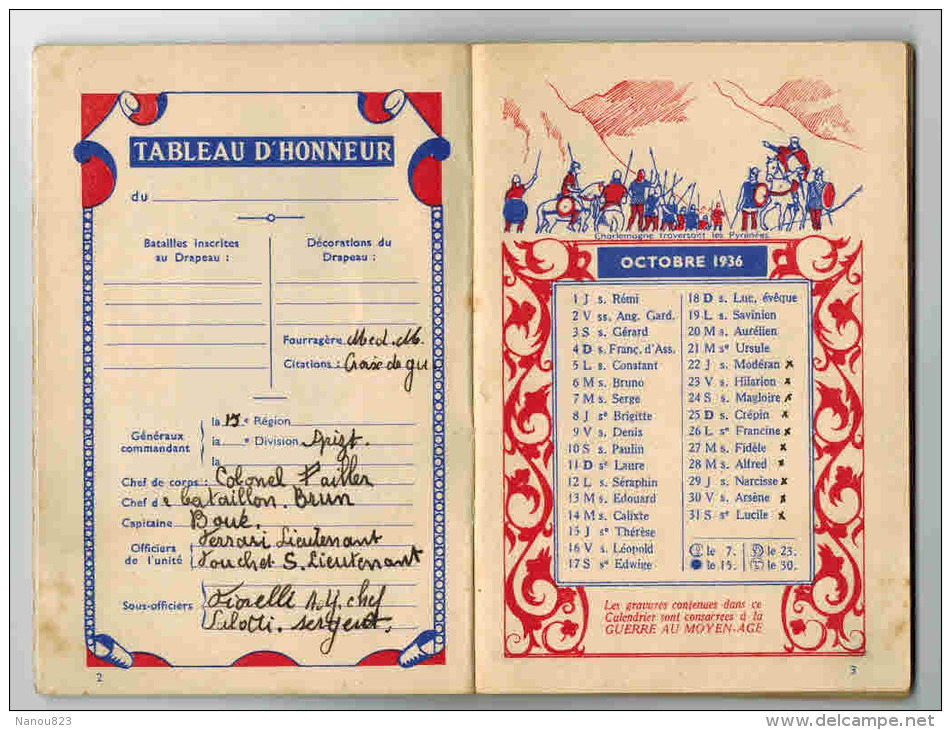 TABLEAU D'HONNEUR
du
Batailles inscrites
au Drapeau :
Décorations du
Drapeau :
Fourragère Med. M.
Citations : Croix de gu
Généraux
commandant
la 15e Région
la e Division
la
Chef de corps : Colonel Pailler
Chef de bataillon. Brun
Capitaine Bouk.
Officiers
de l'unité
Ferrari Lieutenant
Touchet S. Lieutenant
Sous-officiers
Fiorelli chef
Lilotti. sergent.
2
Charlemagne traversant les Pyrénées
OCTOBRE 1936
1 J s. Rémi
2 V ss. Ang. Gard.
3 S s. Gérard
4 D s. Franç. d'Ass.
5 L s. Constant
6 M s. Bruno
7 M s. Serge
8 J se Brigitte
9 V s. Denis
10 S s. Paulin
11 D se Laure
12 L s. Séraphin
13 M s. Edouard
14 M s. Calixte
15 J se Thérèse
16 V s. Léopold
17 S se Edwige
18 D s. Luc, évêque
19 L s. Savinien
20 M s. Aurélien
21 M se Ursule
22 J s. Modéran x
23 V s. Hilarion x
24 S s. Magloire x
25 D s. Crépin x
26 L se Francine x
27 M s. Fidèle x
28 M s. Alfred x
29 J s. Narcisse x
30 V s. Arsène x
31 S se Lucile x
le 7. le 23.
le 15. le 30.
Les gravures contenues dans ce
Calendrier sont consacrées à la
GUERRE AU MOYEN-AGE
3
Nanou823
www.delcampe.net